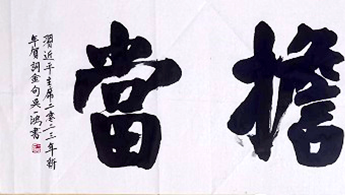 擔當
習近平主席二零二三年新
年賀詞金句吳一鴻書